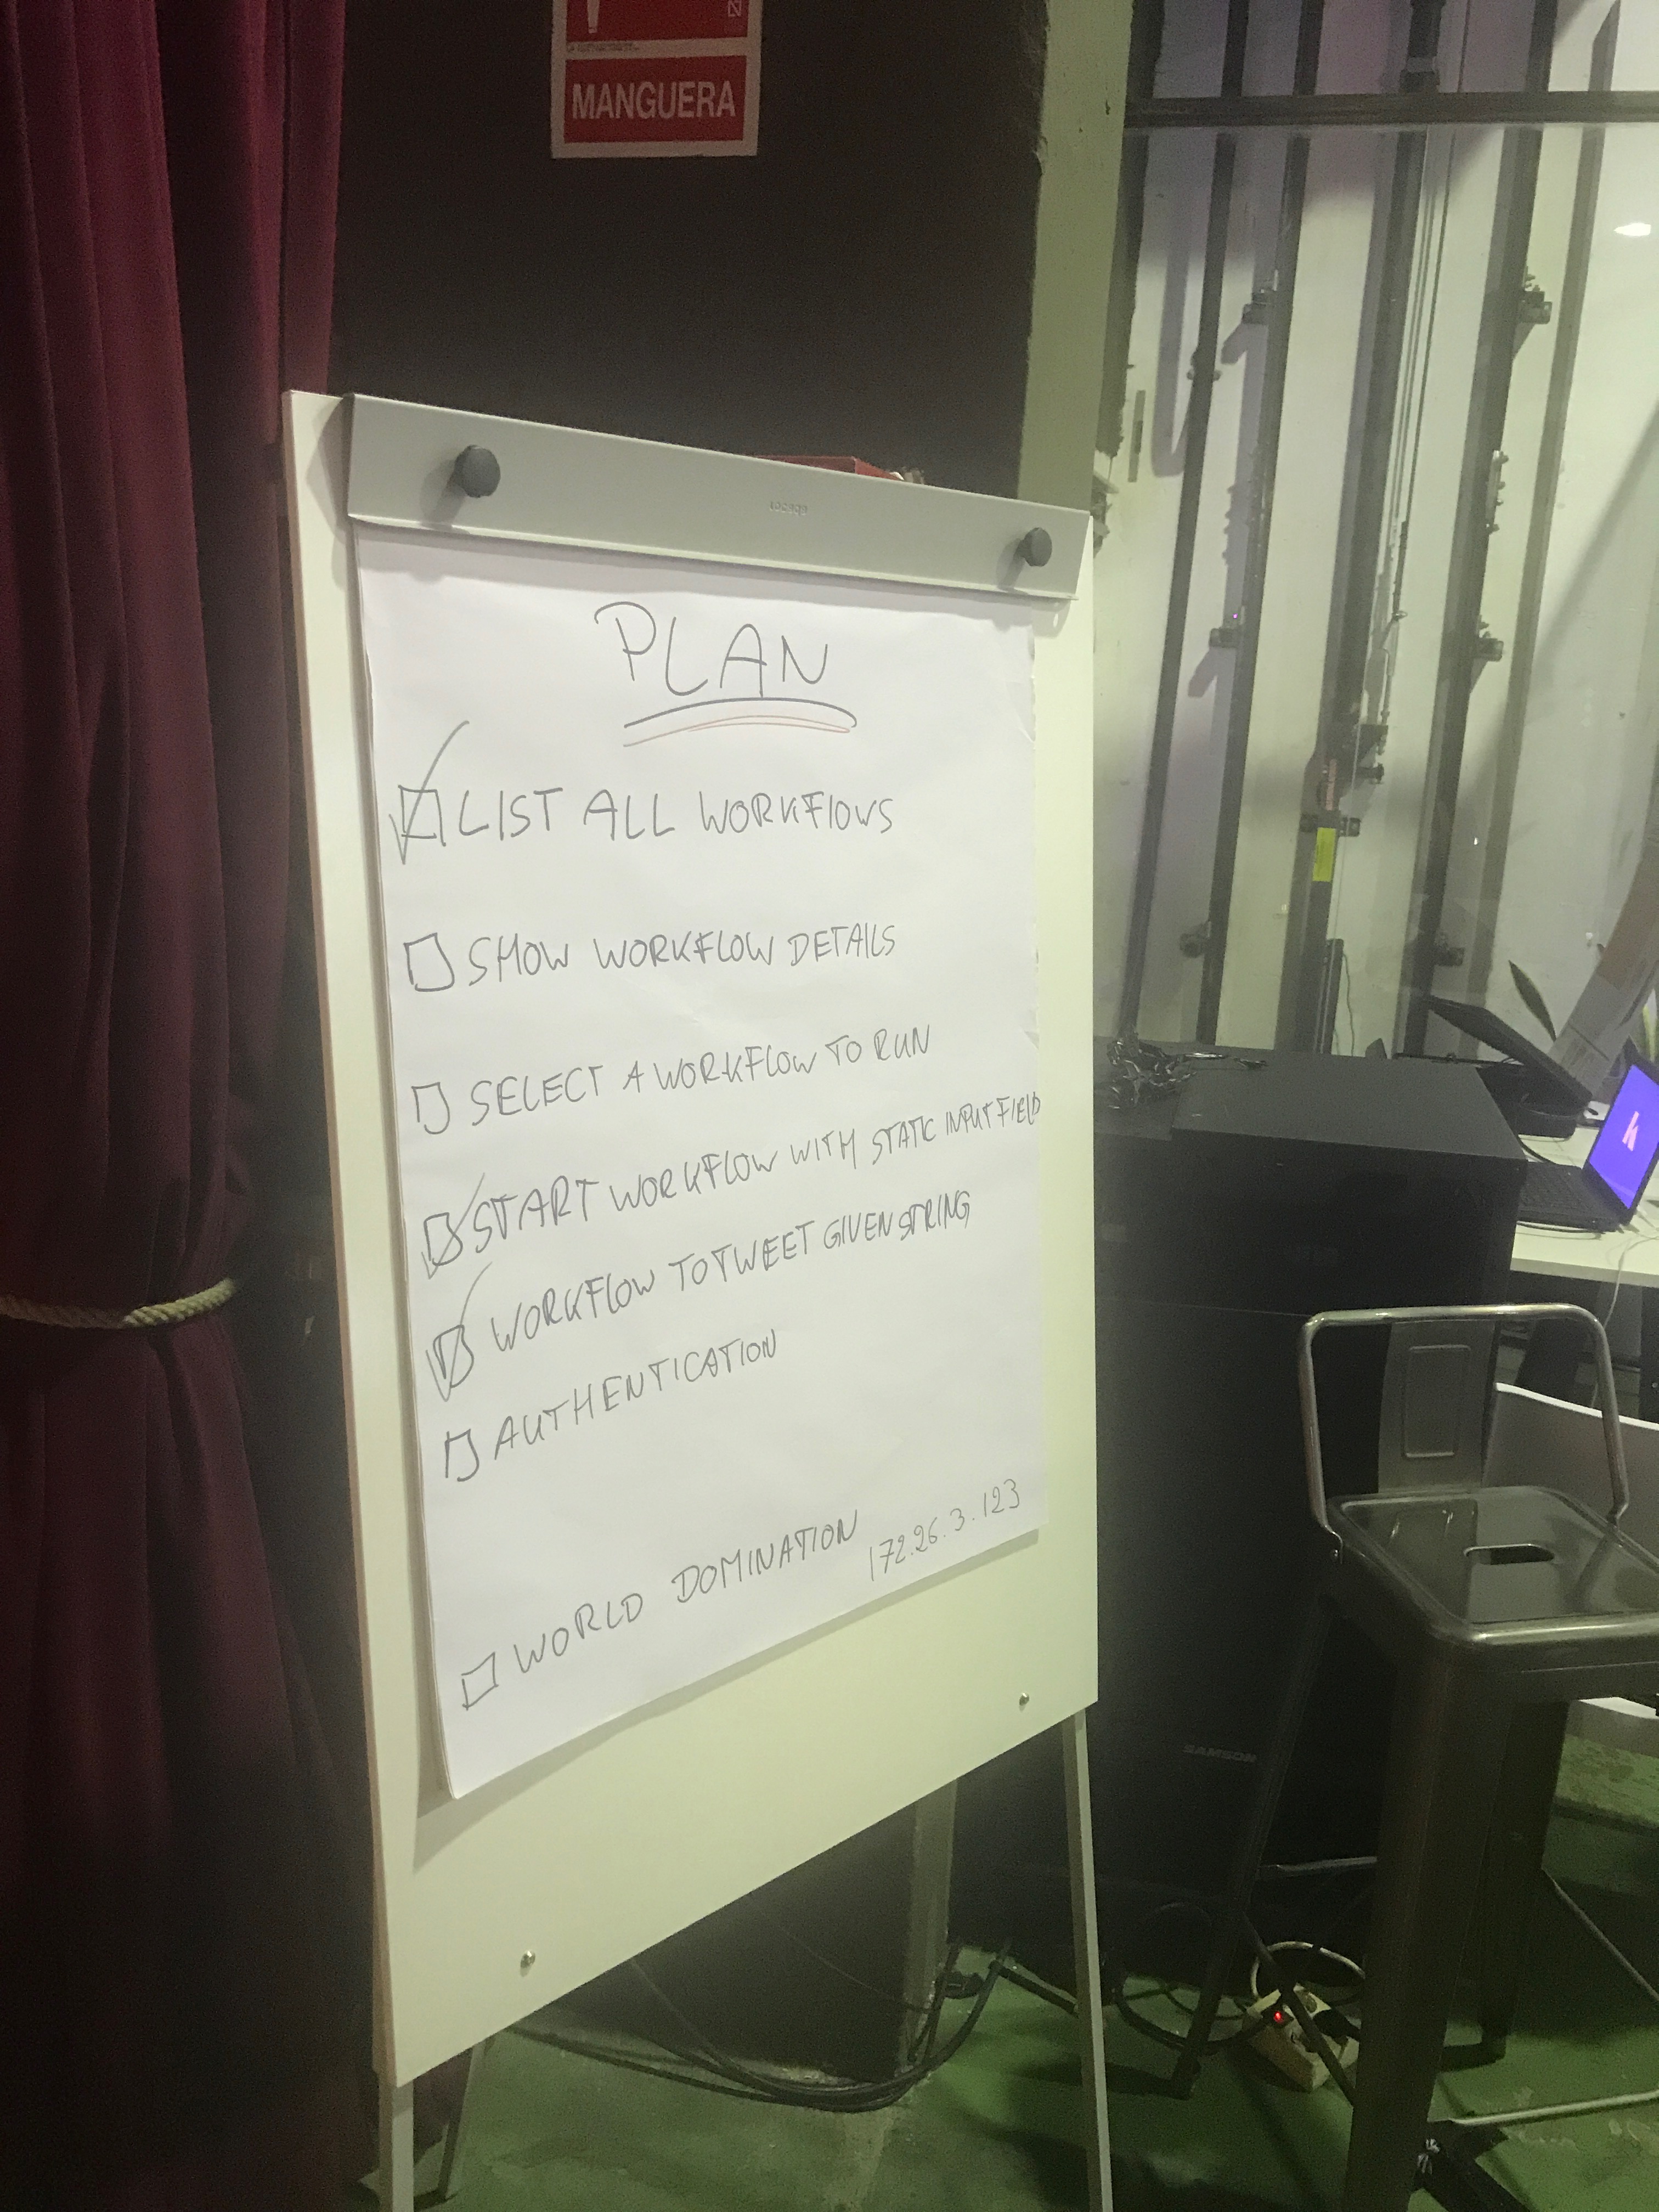 MANGUERA
PLAN
LIST ALL WORKFLOWS
SHOW WORKFLOW DETAILS
SELECT A WORKFLOW TO RUN
START WORKFLOW WITH STATIC INPUT FIELD
WORKFLOW TO TWEET GIVEN STRING
AUTHENTICATION
WORLD DOMINATION
172.26.3.123
SAMSON